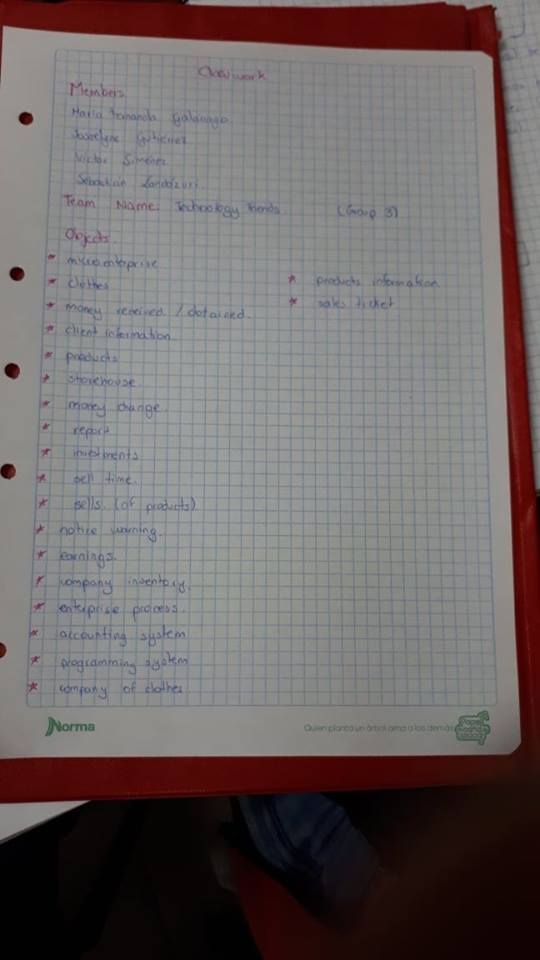 Classwork
Members
Maria Fernanda Galarraga
Joselyne Gutierrez
Victor Simenez
Sebastian Landázuri
Team Name: Technology trends (Group 3)
Objects.
* microenterprise
* clothes
* money received / obtained.
* client information
* products
* storehouse
* money change
* report
* investments
* sell time.
* sells (of products)
* notice warning.
* earnings.
* company inventory.
* enterprise process.
* accounting system
* programming system
* company of clothes
* products information
* sales ticket
Norma
Quien planta un árbol ama a los demás